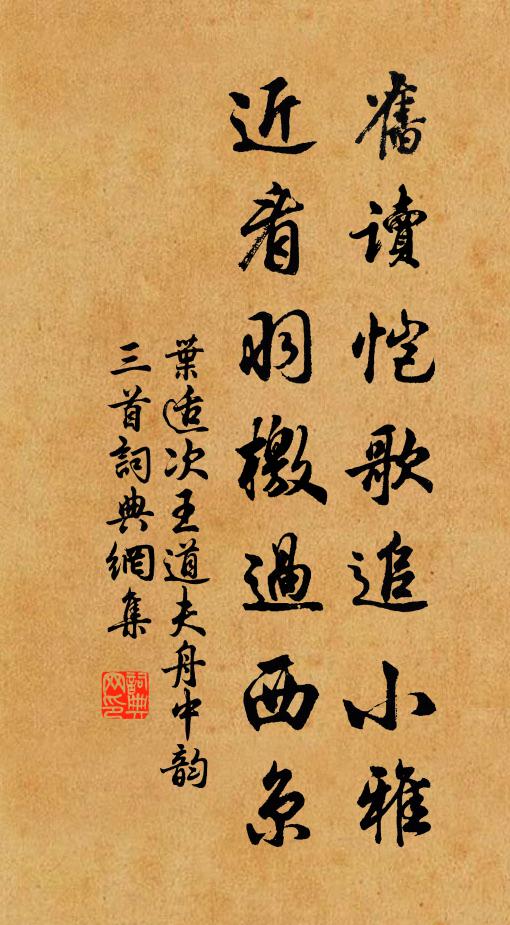 舊讀愷歌追小雅
近看羽檄過西京
葉适次王道夫舟中韵
三首詞典網集
詞典网印